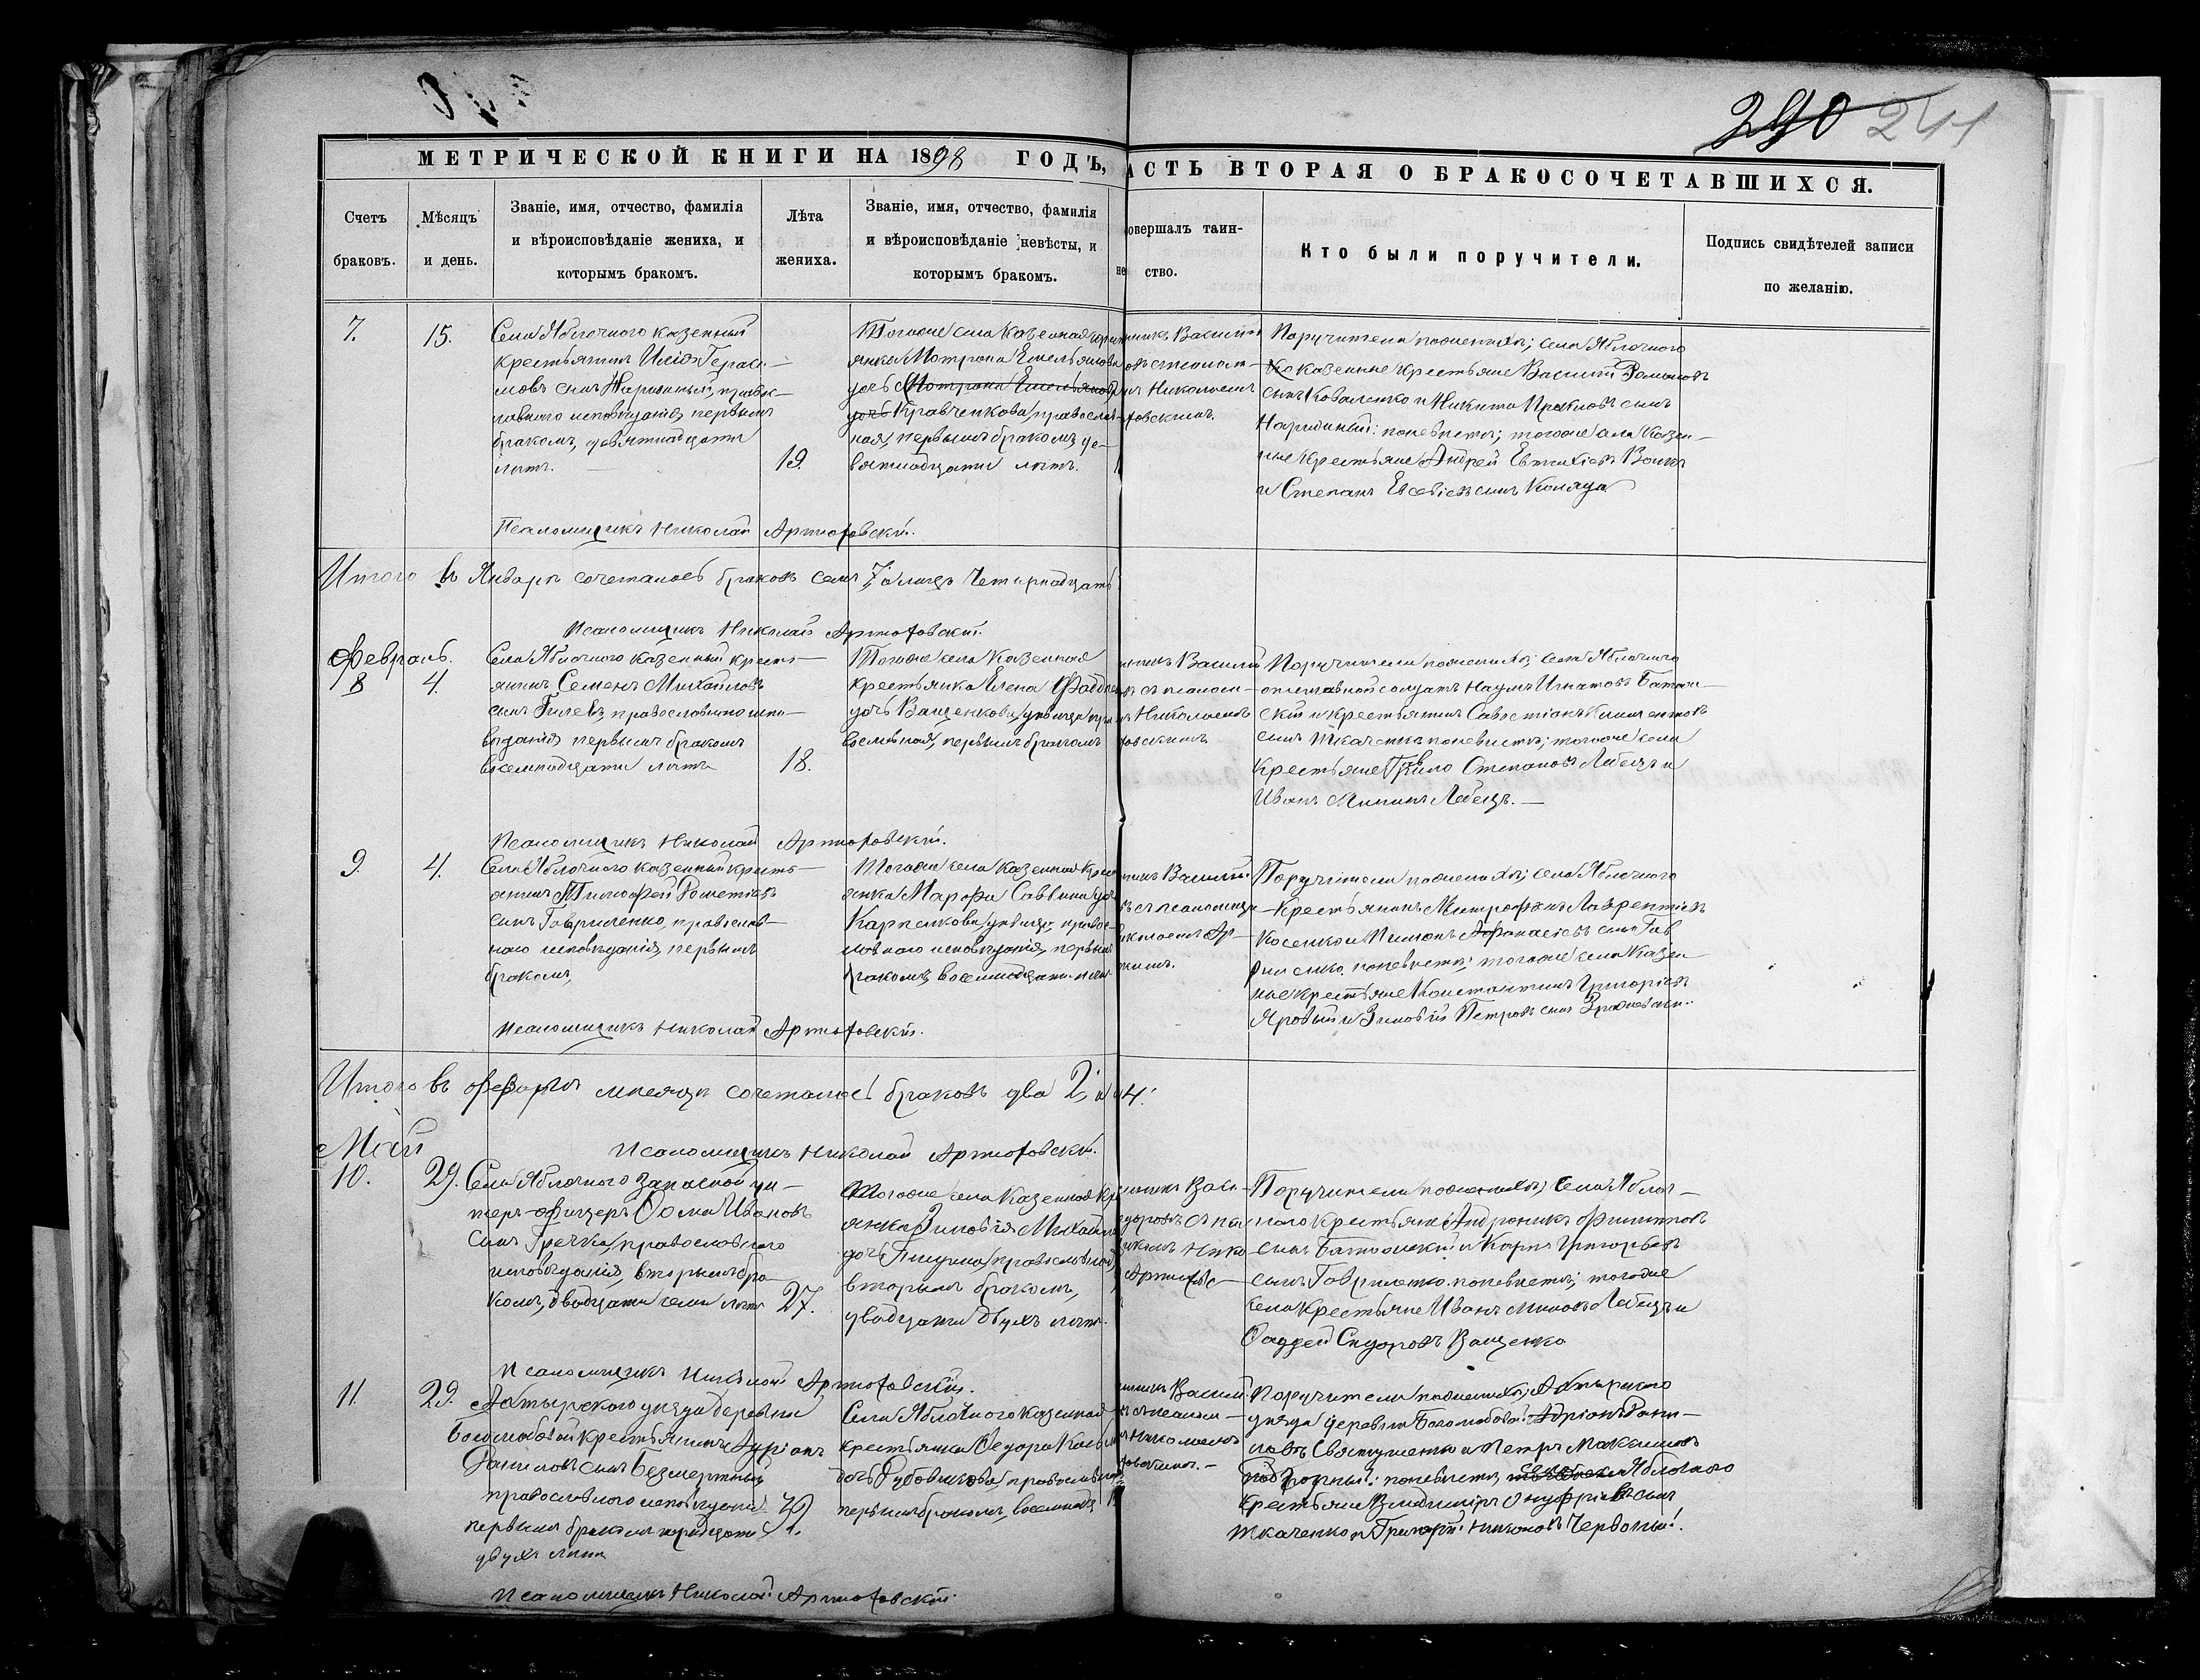 290 241
МЕТРИЧЕСКОЙ КНИГИ НА 1898 ГОДЪ,
АСТЬ ВТОРАЯ О БРАКОСОЧЕТАВШИХСЯ.
Счетъ браковъ.
Мѣсяцъ и день.
Званіе, имя, отчество, фамилія
и вѣроисповѣданіе жениха, и
которымъ бракомъ.
Лѣта жениха.
Званіе, имя, отчество, фамилія
и вѣроисповѣданіе невѣсты, и
которымъ бракомъ.
овершалъ таин-
ство.
Кто были поручители.
Подпись свидѣтелей записи
по желанію.
7. 15.
Села Яблочного казенный
крестьянинъ Илія Гераси-
мовъ сынъ Нарижный, правос-
лавного исповѣданія, первымъ
бракомъ, девятнадцати
лѣтъ.
19.
Тогоже села казенная крест
янка Мотрона Емельянова
дочь Мотрона Емельянова
дочь Кравченкова, православ-
ная, первымъ бракомъ, де-
вятнадцати лѣтъ.
никъ Василій
овъ съ псалом-
Николаемъ
товскимъ.
Поручители по женихѣ; села Яблочного
казенные крестьяне Василій Романовъ
сынъ Коваленко и Никита Прокловъ сынъ
Нарижный: по невѣстѣ; тогоже села казен-
ные крестьяне Андрей Евтихіевъ Волкъ
и Степанъ Евсевіевъ сынъ Коляда
Псаломщикъ Николай Артюховскій.
Итого въ Январѣ сочеталось браковъ семь 7, а лицъ четырнадцать
Псаломщикъ Николай Артюховскій.
Февраль.
8 4.
Села Яблочного казенный кресть-
янинъ Семенъ Михайловъ
сынъ Гилевъ, православного испо-
вѣданія первымъ бракомъ
восемнадцати лѣтъ
18.
Тогоже села казенная
крестьянка Елена Фадде
дочь Ващенкова, дѣвица пра
вославная, первымъ бракомъ
никъ Василій
съ псалом-
Николаемъ
товскимъ.
Поручители по женихѣ; села Яблочного
отставной солдатъ Наумъ Игнатовъ Батон-
скій и крестьянинъ Савостіанъ Климентовъ
сынъ Ткаченко по невѣстѣ; тогоже села
крестьяне Степановъ Лебедь и
Иванъ Мининъ Лебедь. —
Псаломщикъ Николай Артюховскій.
9. 4.
Села Яблочного казенный кресть-
янинъ Тимофей
сынъ Гавриленко, православ-
ного исповѣданія, первымъ
бракомъ,
Тогоже села казенная крест
янка Марфа Саввина доч
Карпенкова, дѣвица, правос-
лавного исповѣданія, первымъ
бракомъ, восемнадцати лѣтъ
никъ Василій
ъ съ псаломщи
иколаемъ Ар-
кимъ.
Поручители по женихѣ; села Яблочного
крестьянинъ Митрофанъ Лаврентіевъ
Косенко и Пименъ Афанасіевъ сынъ Гав
риленко, по невѣстѣ; тогоже села казен-
ные крестьяне Константинъ Григоріевъ
Яровый и Зиновій Петровъ сынъ
Псаломщикъ Николай Артюховскій.
Итого въ Февралѣ мѣсяцѣ сочеталось браковъ два 2, 4.
Псаломщикъ Николай Артюховскій.
Май
10. 29.
Села Яблочного запасной ун-
теръ-офицеръ Ѳома Ивановъ
сынъ Гречка, православного
исповѣданія, вторымъ бра-
комъ, двадцати семи лѣтъ
27.
Тогоже села казенная кре
янка Зиновія Михайл
дочь православной,
вторымъ бракомъ,
двадцати двухъ лѣтъ.
никъ Васи-
доровъ съ пса
икомъ Нико
Артюхов-
Поручители по женихѣ; села Яблоч-
ного крестьяне Андроникъ Филиповъ
сынъ Батонскій и Карпъ Григорьевъ
сынъ Гавриленко. по невѣстѣ; тогоже
села крестьяне Иванъ Мининъ Лебедь и
Ѳаддей Сидоровъ Ващенко
Псаломщикъ Николай Артюховскій.
11. 29.
Ахтырского уѣзда деревни
Боголюбовой крестьянинъ
Даниловъ сынъ Безмертный
православного исповѣданія
первымъ бракомъ тридцати
двухъ лѣтъ
32.
Села Яблочного казенная
крестьянка Ѳедора Косьм
дочь православная
первымъ бракомъ, восемнадц
никъ Васил.
съ псалом-
Николаемъ
товскимъ. —
Поручители по женихѣ; Ахтырского
уѣзда деревни Боголюбовой: Адріанъ Дани-
ловъ и Петръ Максимовъ
Подгорный: по невѣстѣ, села Яблочного
крестьяне Владиміръ Онуфріевъ сынъ
Ткаченко и Григорій Никоновъ Червоный.
Псаломщикъ Николай Артюховскій.